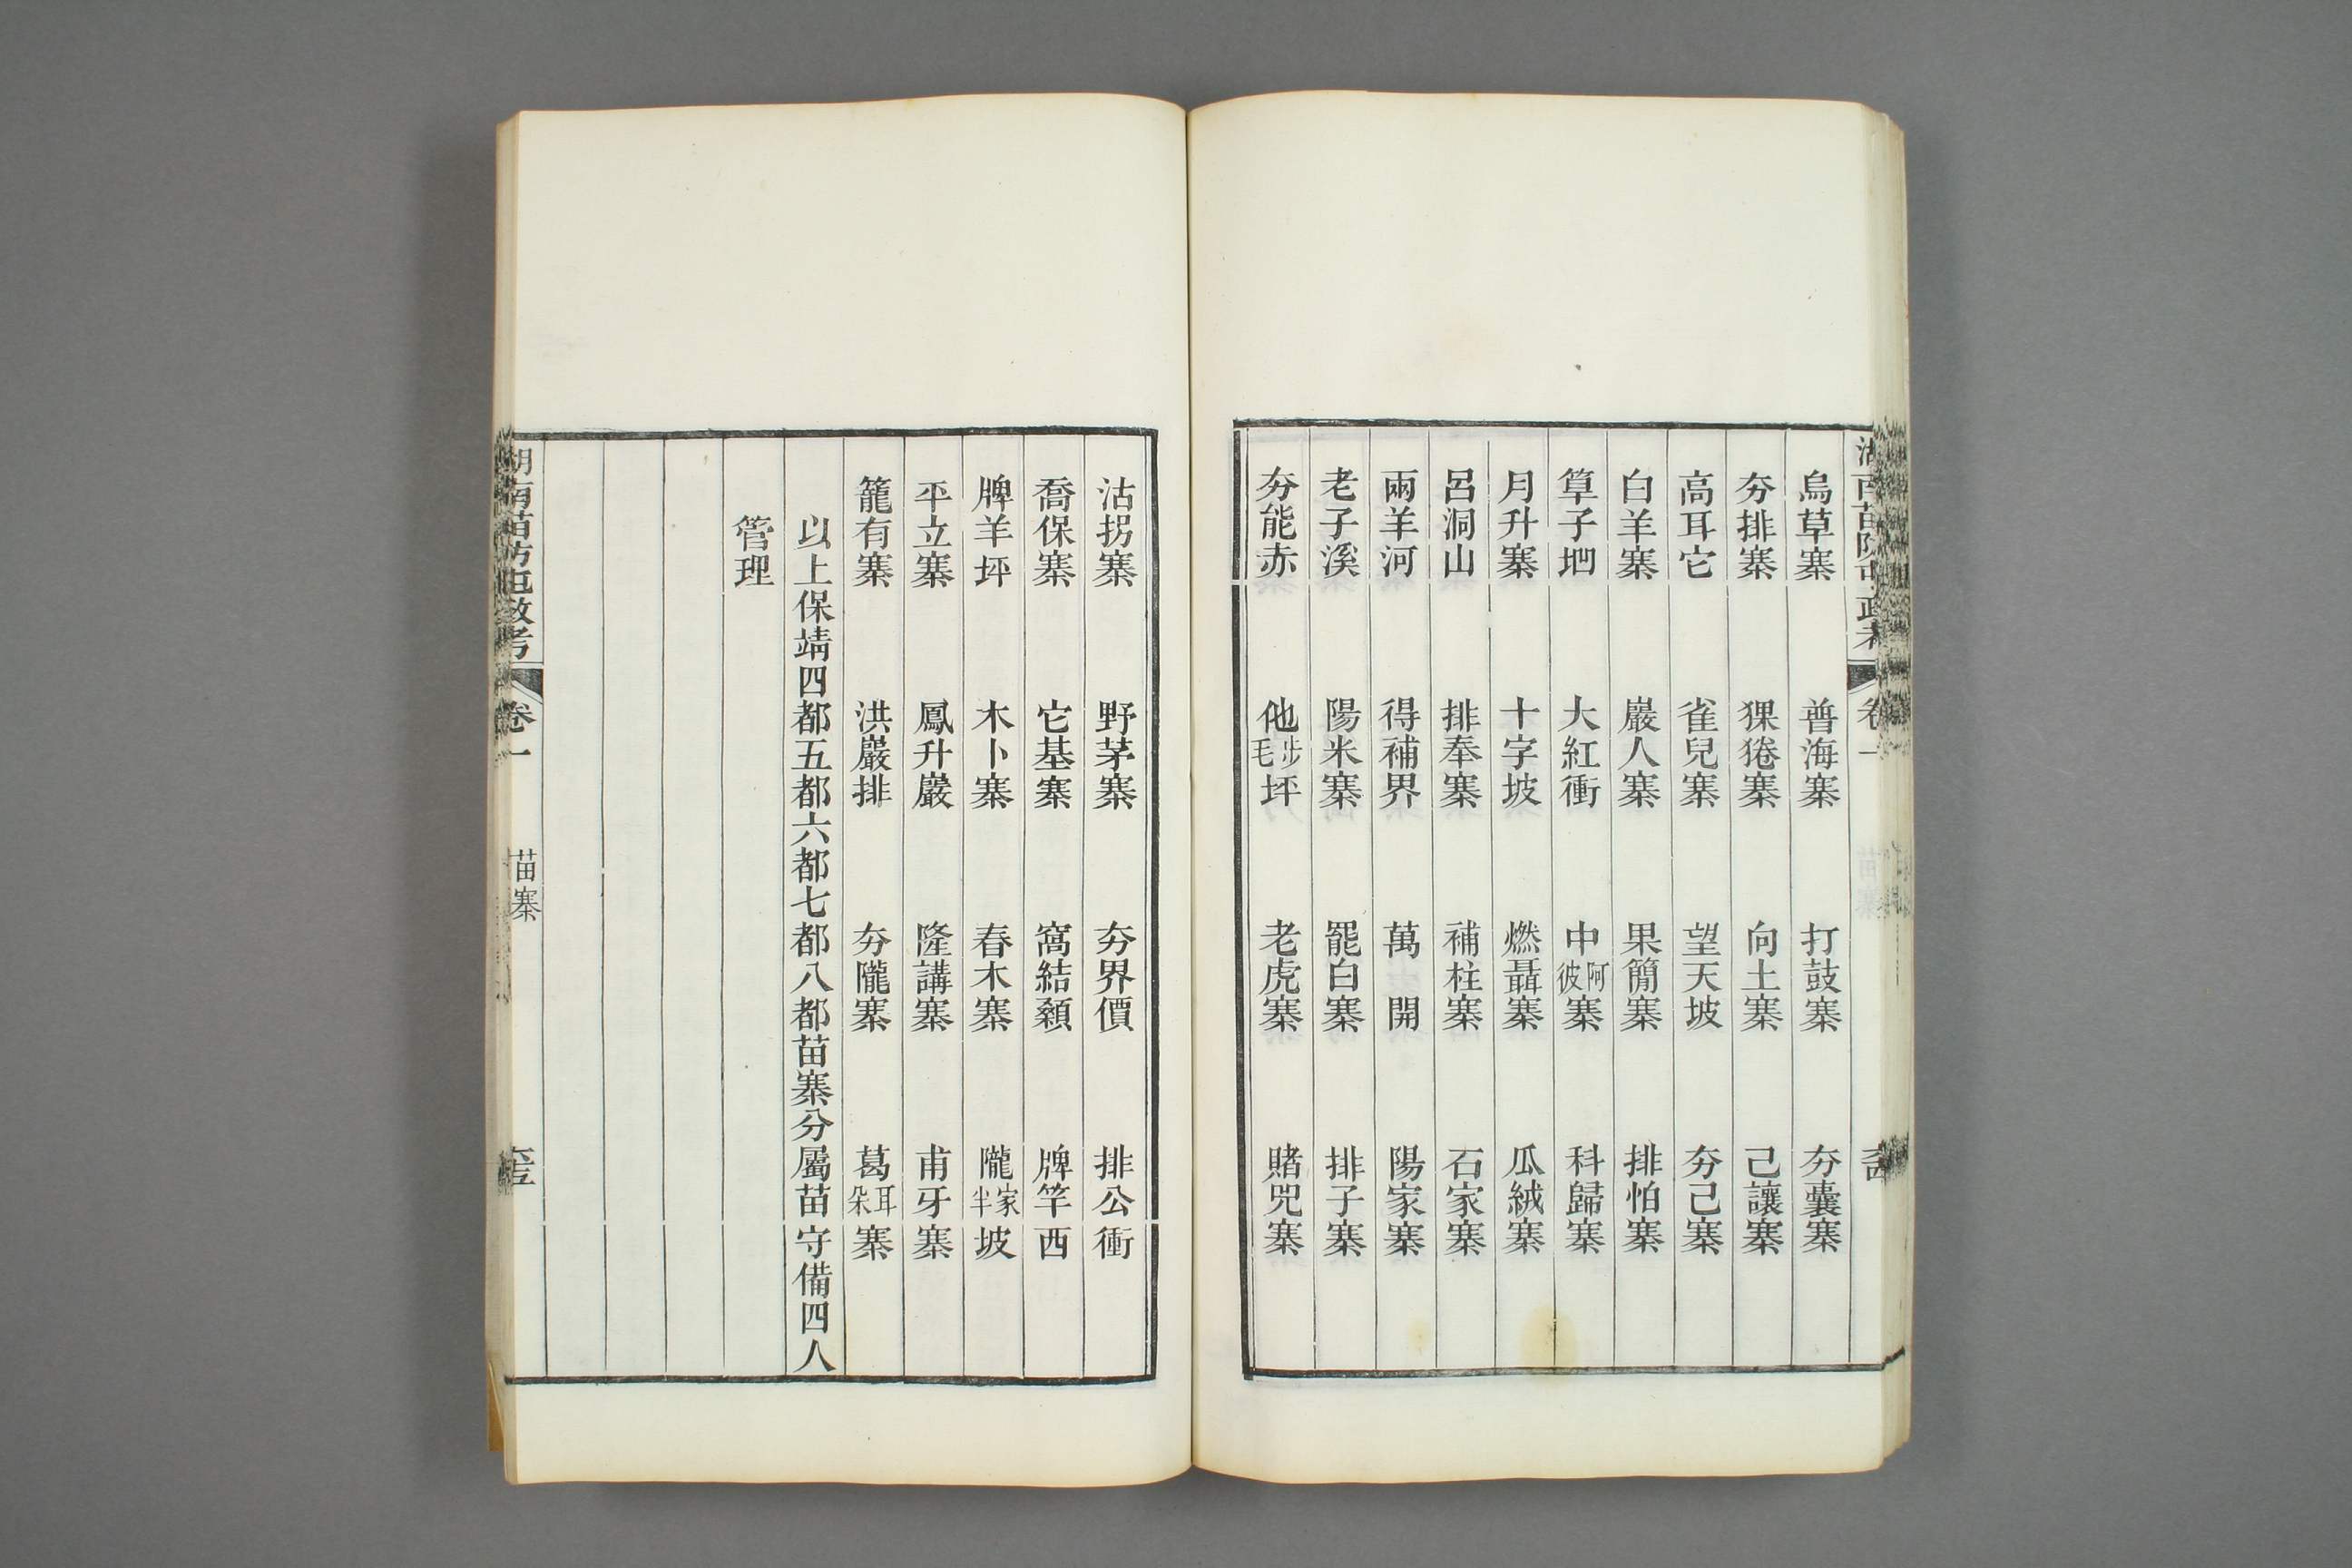 烏草寨 普海寨 打鼓寨 夯囊寨
夯排寨 猓猪寨 向土寨 己讓寨
高耳它 雀兒寨 望天坡 夯己寨
白羊寨 巖人寨 果簡寨 排怕寨
草子坳 大紅衝 中阿彼寨 科歸寨
月升寨 十字坡 燃聶寨 瓜絨寨
呂洞山 排奉寨 補柱寨 石家寨
兩羊河 得補界 萬開 陽家寨
老子溪 陽米寨 罷白寨 排子寨
夯能赤 他步毛坪 老虎寨 賭咒寨
沽拐寨 野茅寨 夯界價 排公衝
喬保寨 它基寨 窩結纇 牌竿西
牌羊坪 木卜寨 春木寨 隴家半坡
平立寨 鳳升巖 隆講寨 甫牙寨
籠有寨 洪巖排 夯隴寨 葛耳朵寨
以上保靖四都五都六都七都八都苗寨分屬苗守備四人
管理
湖南苗防屯政考 卷一 苗寨